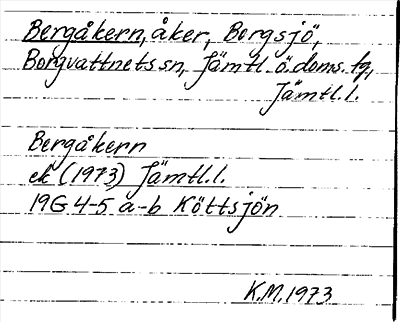 Bergåkern, åker, Borgsjö,
Borgvattnets sn, Jämtl. ö. doms. fg,
Jämtl. l.
Bergåkern
ek (1973) Jämtl. l.
19G 4-5 a-b Köttsjön
K.M. 1973